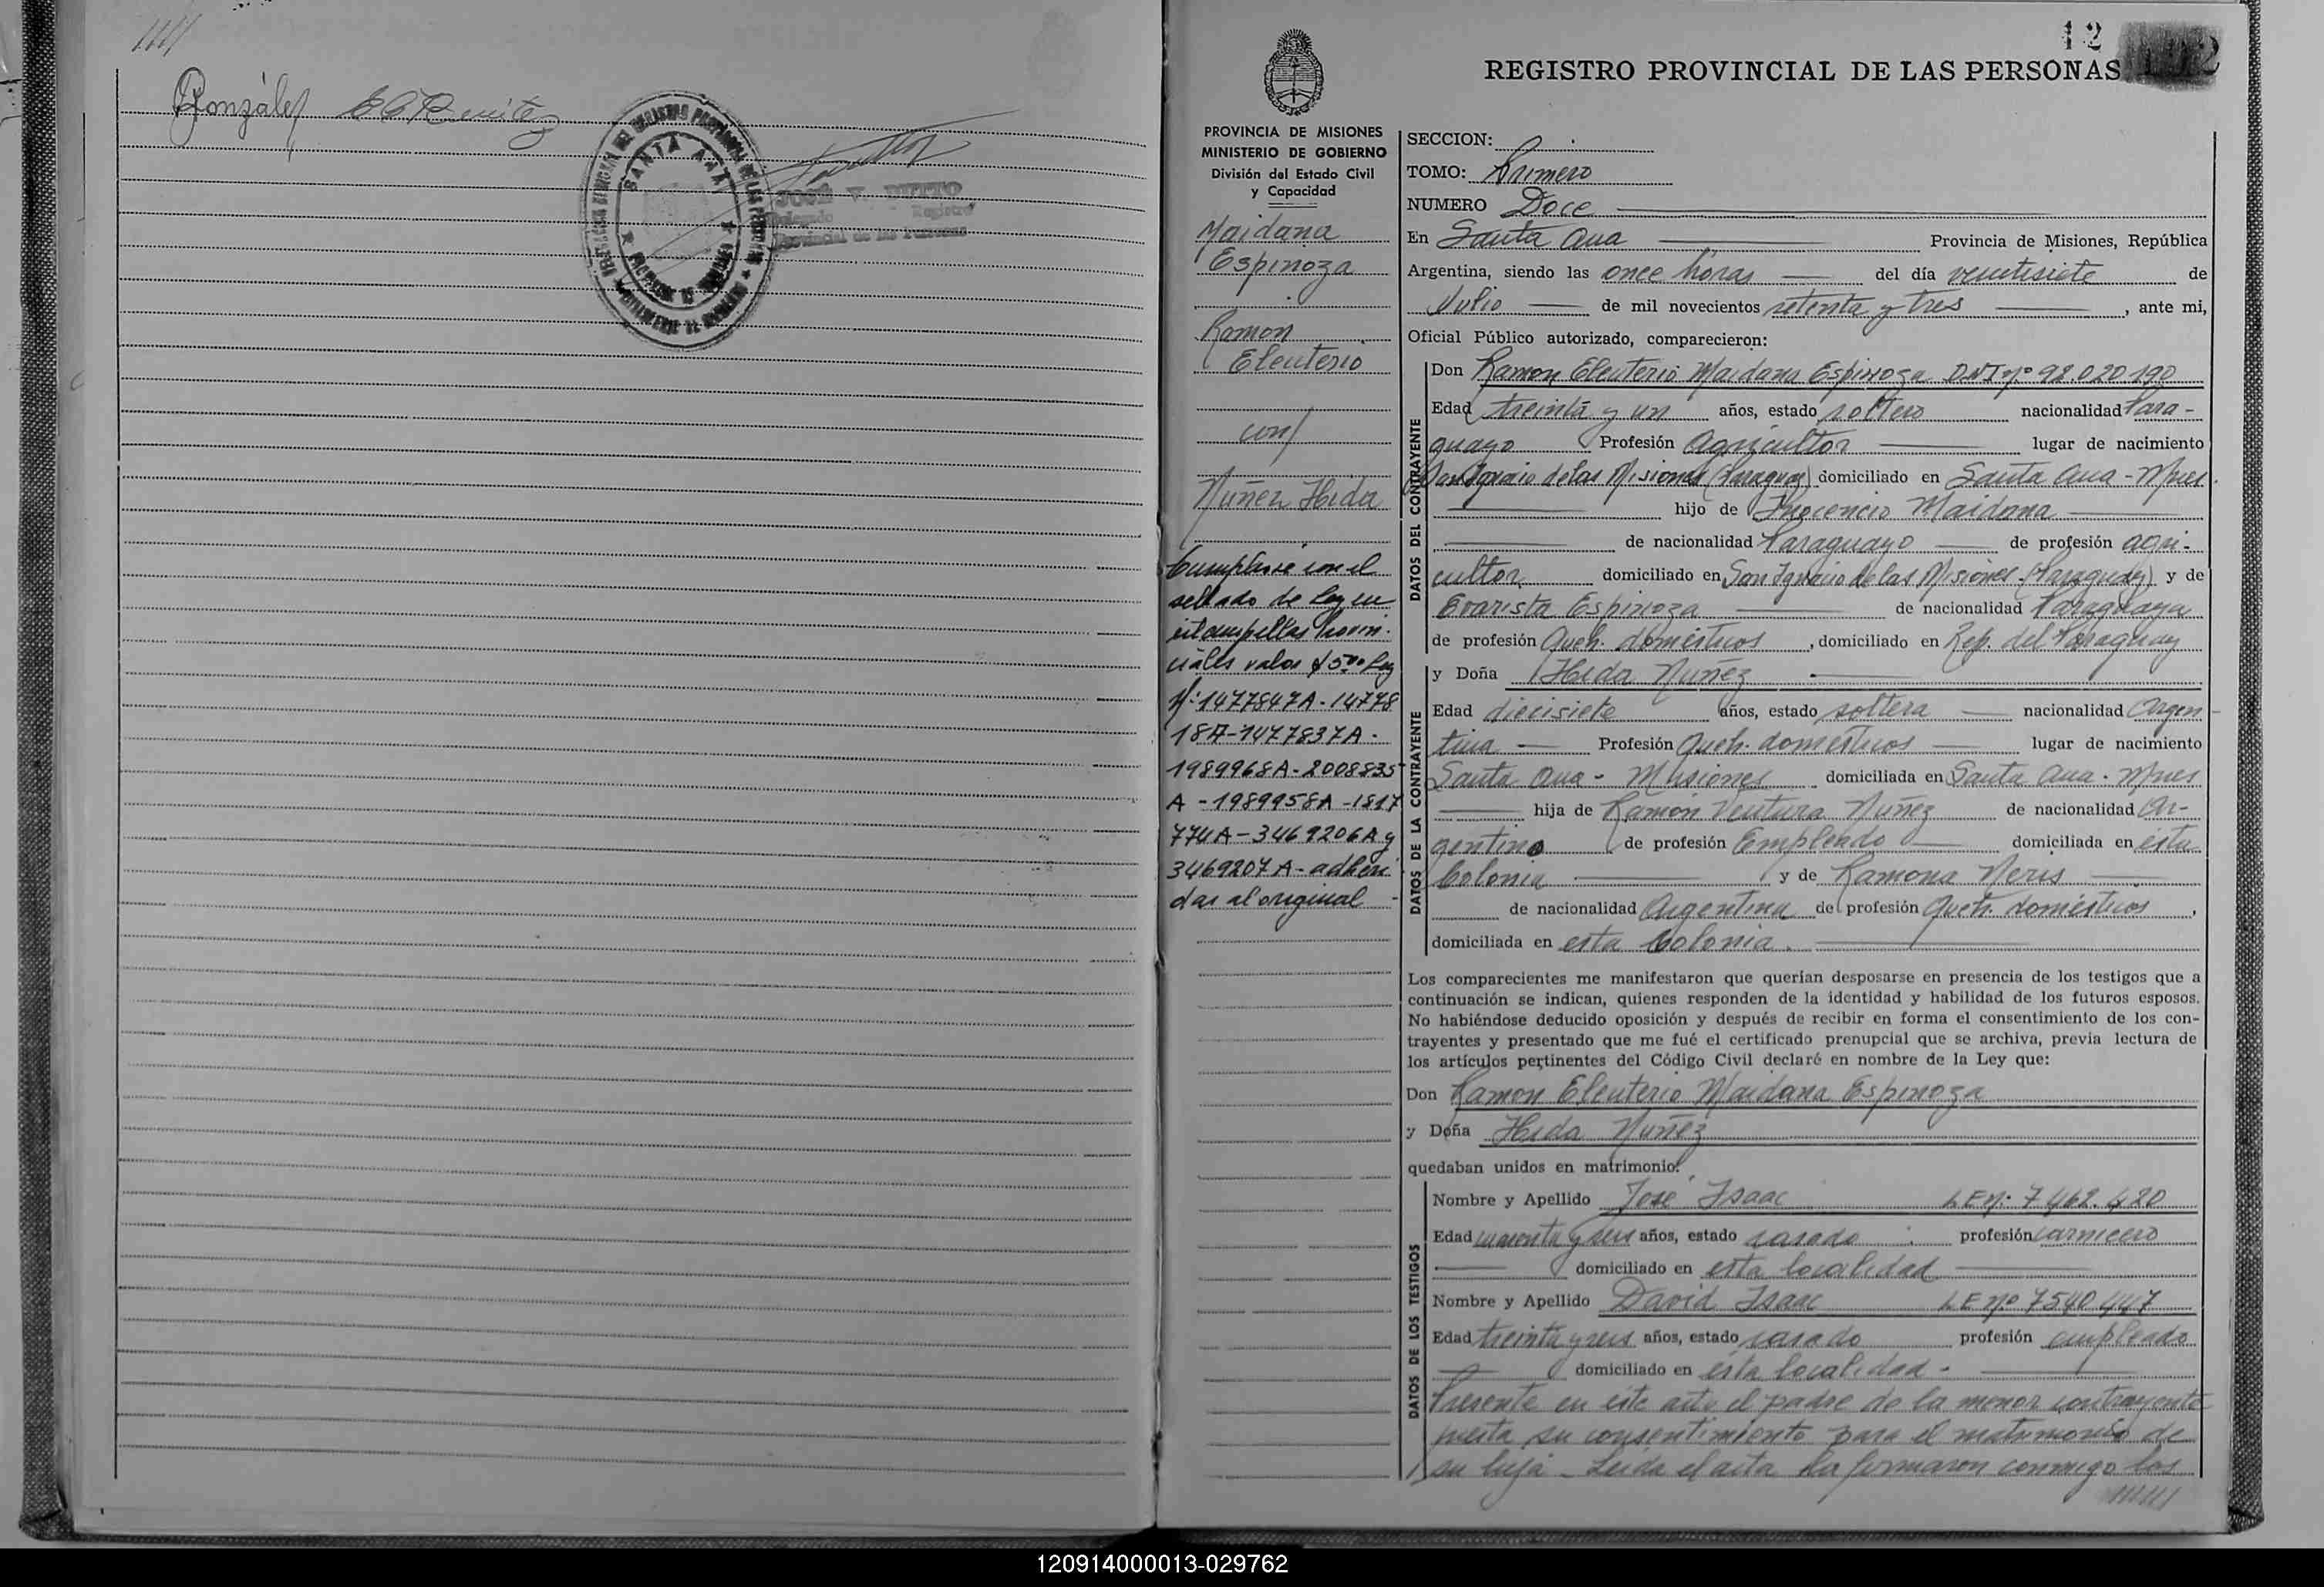 González E C Benítez
SANTA ANA
JOSÉ V. 
Delegado Registro
Provincial de las Personas
12
REGISTRO PROVINCIAL DE LAS PERSONAS
PROVINCIA DE MISIONES
MINISTERIO DE GOBIERNO
División del Estado Civil
y Capacidad
Maidana
Espinoza
Ramon
Eleuterio
con/
Nuñez Hida
Cumplase con el
sellado de Ley en
estampillas Provin-
ciales valor $5,00 Ley
Nº 1477847A - 14778
18A - 1477837A -
1989968A - 2008835
A - 1989958A - 1817
774A - 3469206A y
3469207A - adheri
das al original -
SECCION:
TOMO: Primero
NUMERO Doce
En Santa Ana Provincia de Misiones, República
Argentina, siendo las once horas del día veintisiete de
Julio de mil novecientos setenta y tres, ante mi,
Oficial Público autorizado, comparecieron:
DATOS DEL CONTRAYENTE
Don Ramon Eleuterio Maidana Espinoza DNI nº 92.020.190
Edad treinta y un años, estado soltero nacionalidad Para-
guayo Profesión Agricultor lugar de nacimiento
San Ignacio de las Misiones (Paraguay) domiciliado en Santa Ana - Mnes.
hijo de Inocencio Maidana
de nacionalidad Paraguayo de profesión agri-
cultor domiciliado en San Ignacio de las Misiones - (Paraguay) y de
Evarista Espinoza de nacionalidad Paraguaya
de profesión Queh. domésticos, domiciliado en Rep. del Paraguay
DATOS DE LA CONTRAYENTE
y Doña Hida Nuñez
Edad diecisiete años, estado soltera nacionalidad Argen-
tina Profesión Queh. domésticos lugar de nacimiento
Santa Ana - Misiones domiciliada en Santa Ana - Mnes
hija de Ramon Ventura Nuñez de nacionalidad Ar-
gentino de profesión Empleado domiciliada en esta
Colonia y de Ramona Neris
de nacionalidad Argentina de profesión Queh. domésticos,
domiciliada en esta Colonia.
Los comparecientes me manifestaron que querían desposarse en presencia de los testigos que a
continuación se indican, quienes responden de la identidad y habilidad de los futuros esposos.
No habiéndose deducido oposición y después de recibir en forma el consentimiento de los con-
trayentes y presentado que me fué el certificado prenupcial que se archiva, previa lectura de
los artículos pertinentes del Código Civil declaré en nombre de la Ley que:
Don Ramon Eleuterio Maidana Espinoza
y Doña Hida Nuñez
quedaban unidos en matrimonio.
DATOS DE LOS TESTIGOS
Nombre y Apellido José Isaac L E Nº 7.462.420
Edad cuarenta y seis años, estado casado profesión carnicero
domiciliado en esta localidad
Nombre y Apellido David Isaac L E nº 7540.447
Edad treinta y seis años, estado casado profesión empleado
domiciliado en esta localidad -
Presente en este acto el padre de la menor contrayente
presta su consentimiento para el matrimonio de
su hija - Leída el acta la firmaron conmigo los
120914000013-029762